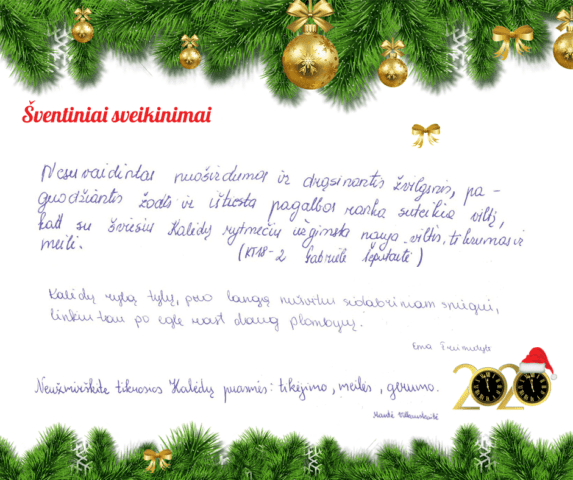 Šventiniai sveikinimai
Nesuvaidintas nuoširdumas ir drąsinantis žvilgsnis, pa-
guodžiantis žodis ir ištiesta pagalbos ranka suteikia viltį,
kad su šviesiu Kalėdų rytmečiu užgimsta nauja viltis, tikrumas ir
meilė.
(KT18-2 Gabrielė
Kalėdų rytą tylų, pro langą nutvislu sidabriniam snigui,
linkiu tau po egle rast daug
Ema
Neužmirškite tikrosios Kalėdų prasmės: tikėjimo, meilės, gerumo.
2020